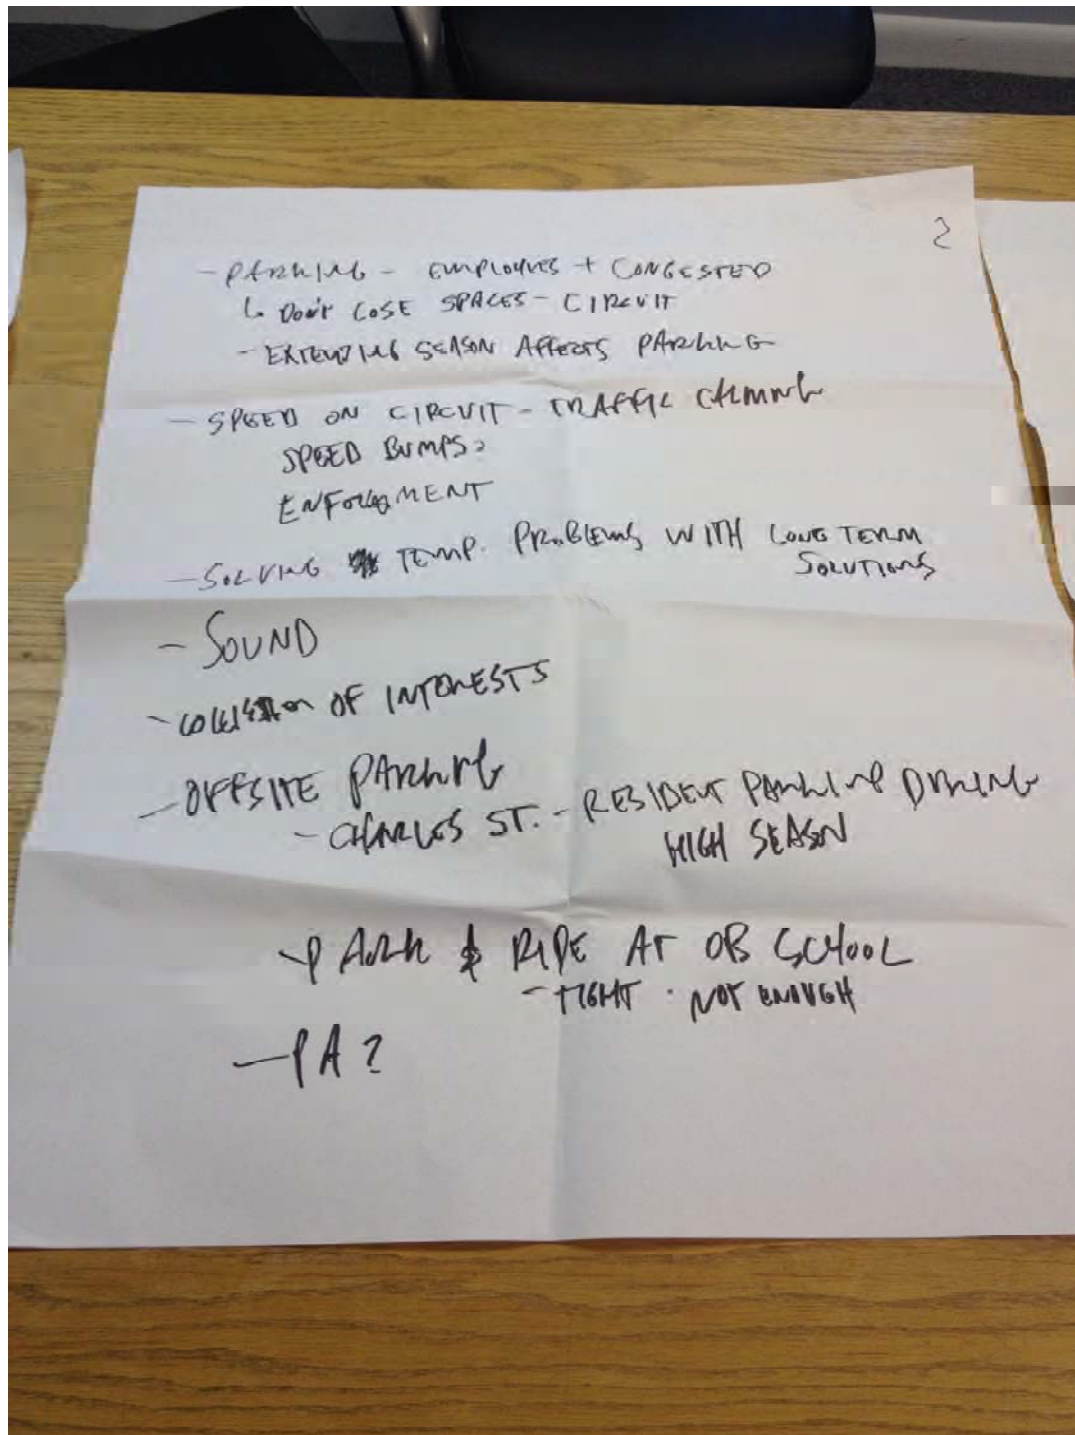 2
- PARKING - EMPLOYEES + CONGESTED
↳ DON'T LOSE SPACES - CIRCUIT
- EXTENDING SEASON AFFECTS PARKING
- SPEED ON CIRCUIT - TRAFFIC CALMING
SPEED BUMPS?
ENFORCEMENT
- SOLVING TEMP. PROBLEMS WITH LONG TERM
SOLUTIONS
- SOUND
- OF INTERESTS
- OFFSITE PARKING
- CHARLES ST. - RESIDENT PARKING DURING
HIGH SEASON
- PARK & RIDE AT OB SCHOOL
- TIGHT . NOT ENOUGH
- PA?